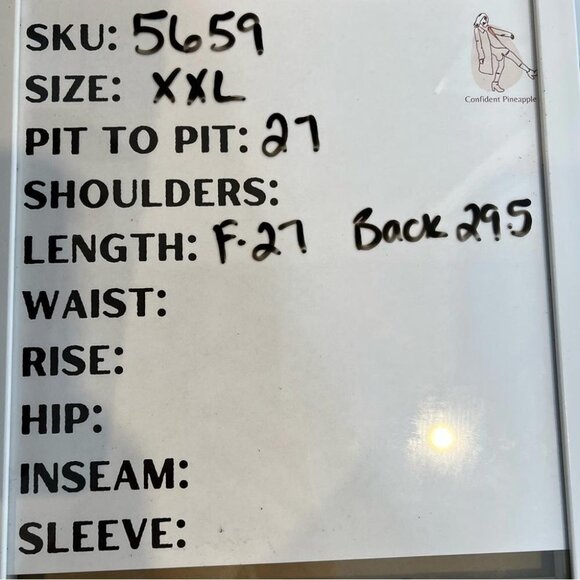 SKU: 5659
Confident Pineapple
SIZE: XXL
PIT TO PIT: 27
SHOULDERS:
LENGTH: F-27 Back 29.5
WAIST:
RISE:
HIP:
INSEAM:
SLEEVE: